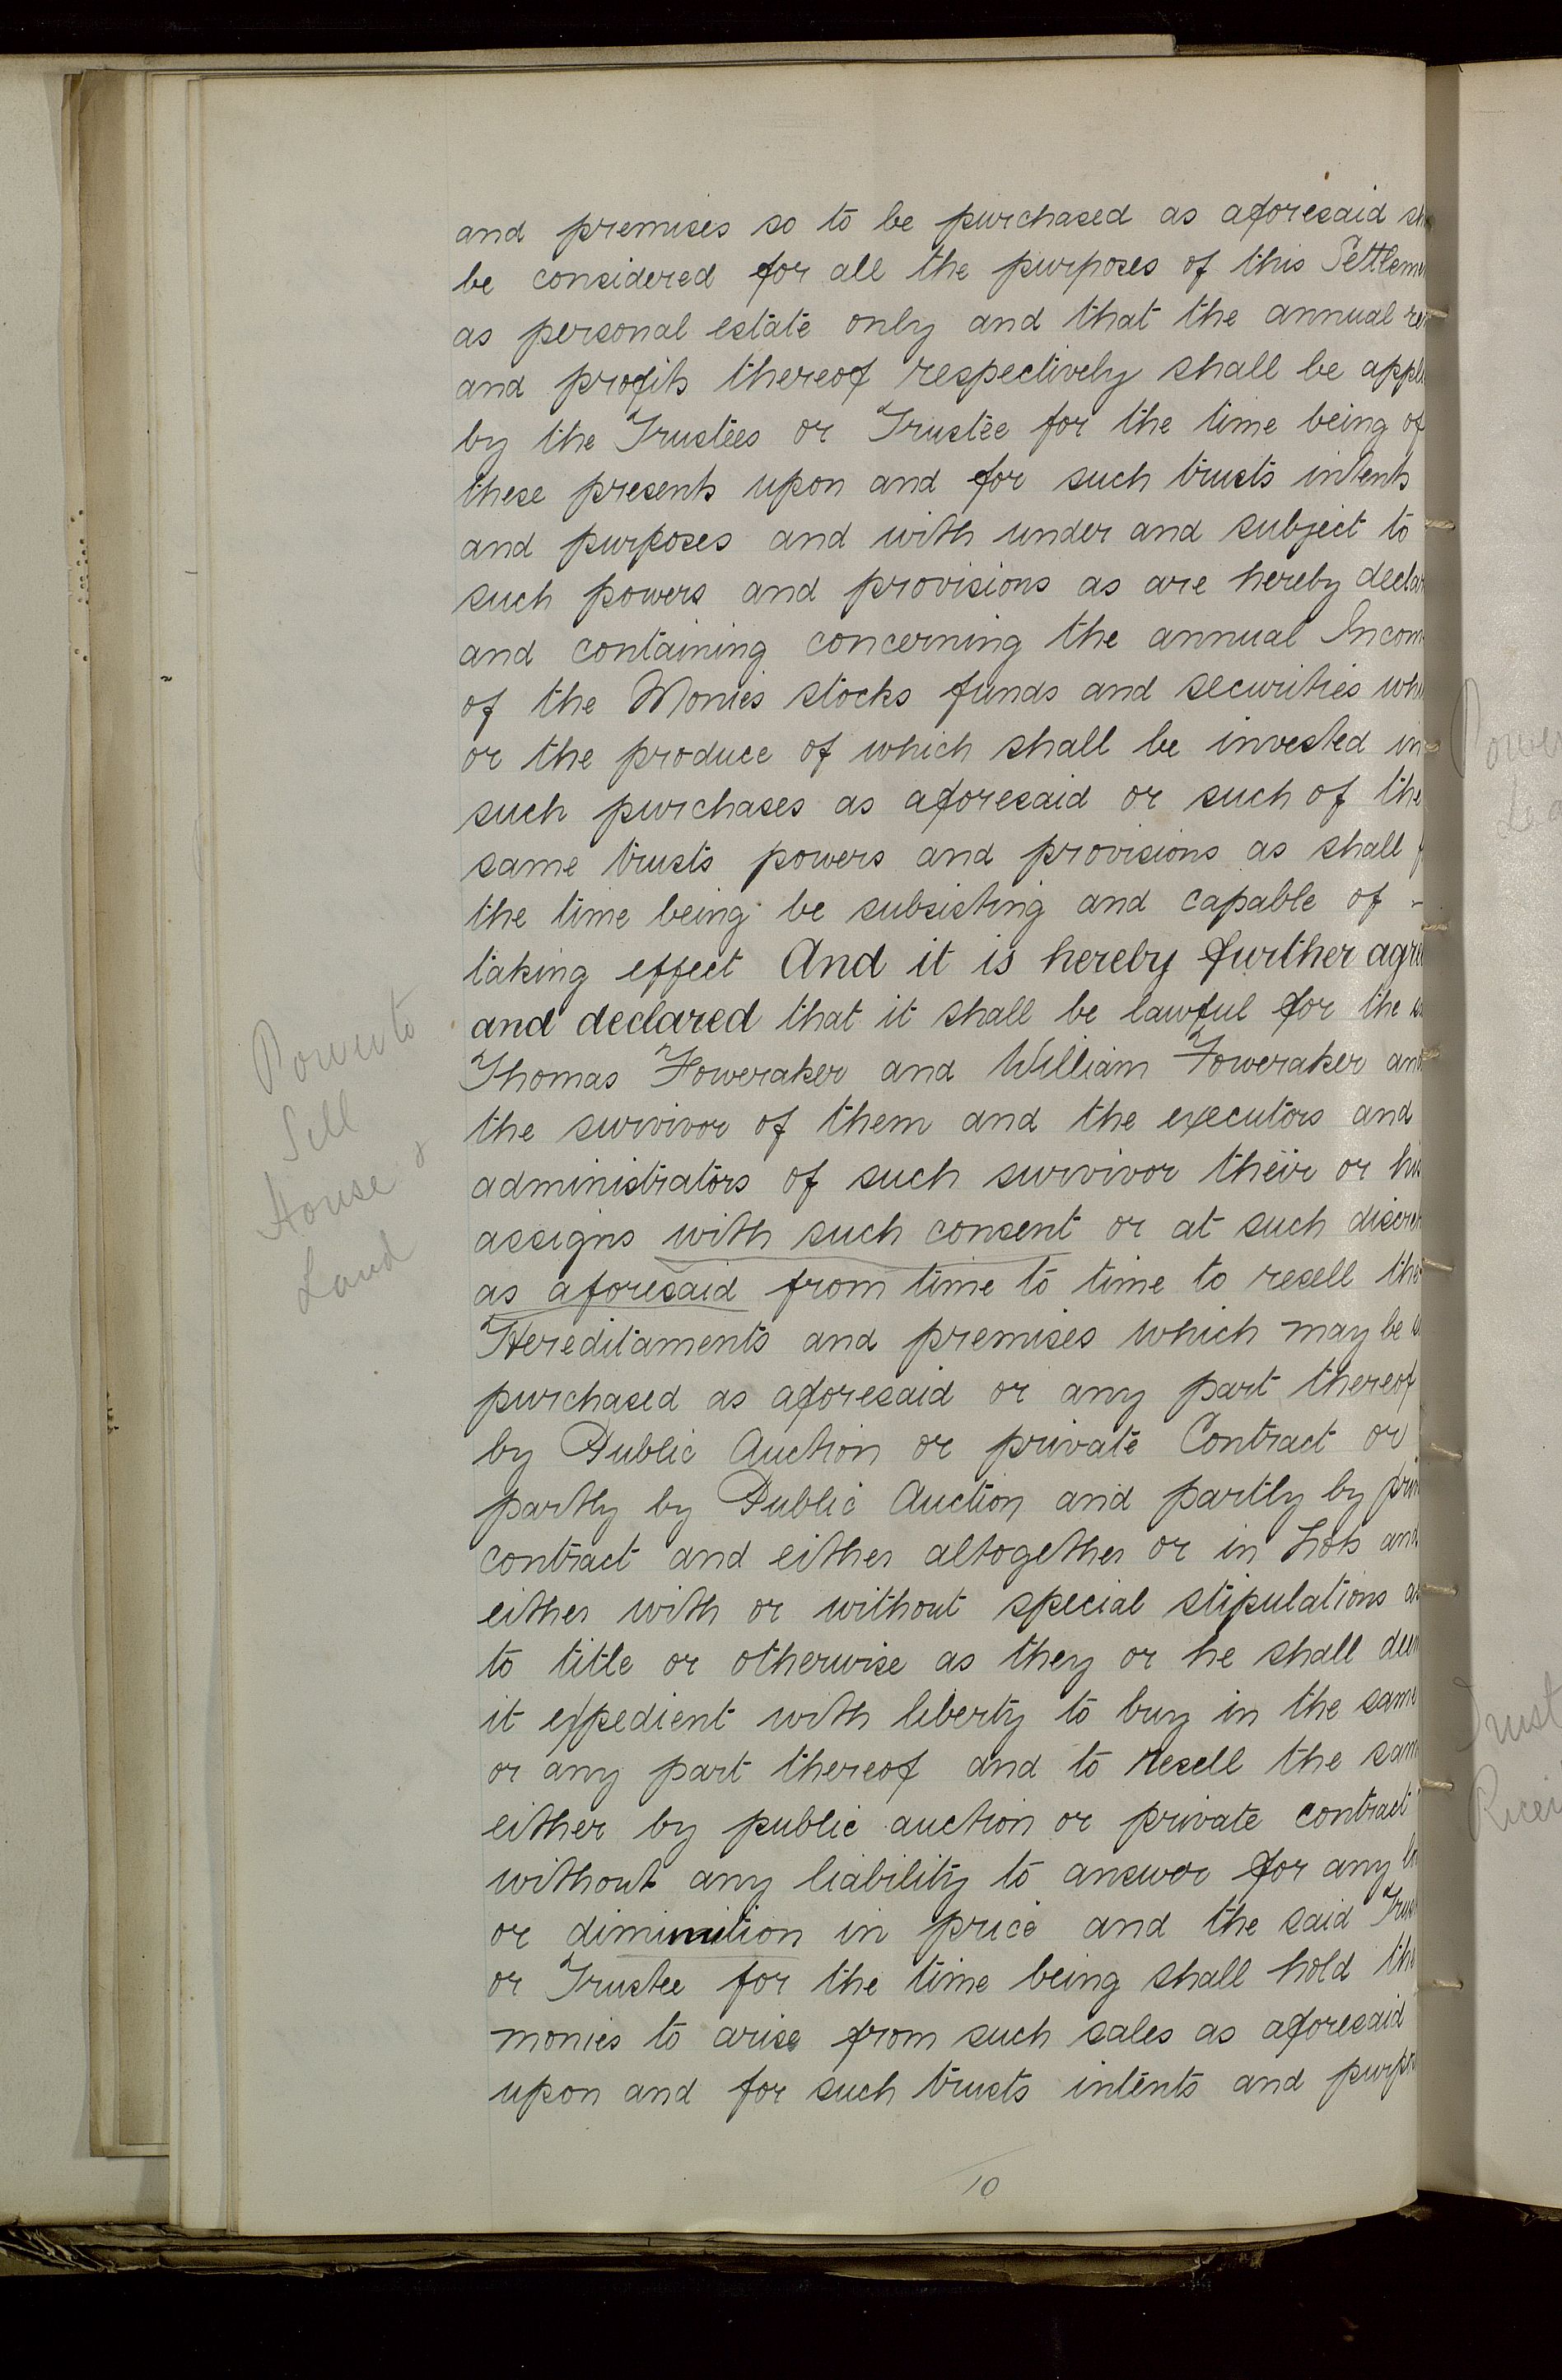 and premises so to be purchased as aforesaid sh
be considered for all the purposes of this Settlem
as personal estate only and that the annual re
and profits thereof respectively shall be appl
by the Trustees or Trustee for the time being of
these presents upon and for such trusts intents
and purposes and with under and subject to
such powers and provisions as are hereby declar
and containing concerning the annual Incom
of the Monies stocks funds and securities whi
or the produce of which shall be invested in
such purchases as aforesaid or such of the
same trusts powers and provisions as shall f
the time being be subsisting and capable of -
taking effect And it is hereby further agre
and declared that it shall be lawful for the s
Thomas Foweraker and William Foweraker and
the survivor of them and the executors and
administrators of such survivor their or his
assigns with such consent or at such discre
as aforesaid from time to time to resell the
Hereditaments and premises which may be s
purchased as aforesaid or any part thereof
by Public Auction or private Contract or
partly by Public Auction and partly by priv
contract and either altogether or in Lots and
either with or without special stipulations as
to title or otherwise as they or he shall deem
it expedient with liberty to buy in the same
or any part thereof and to resell the same
either by public auction or private contract
without any liability to answer for any lo
or diminution in price and the said Trus
or Trustee for the time being shall hold the
monies to arise from such sales as aforesaid
upon and for such trusts intents and purpos
10
Power to
Sell
House &
Land
Power
Lea
Trust
Recei